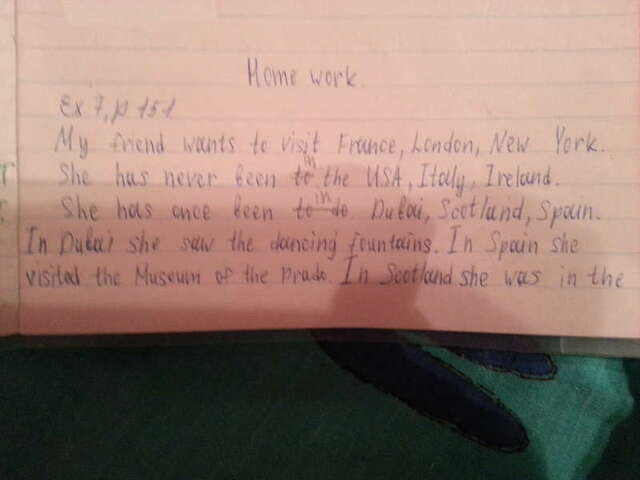 Home work.
Ex 7, p 151
My friend wants to visit France, London, New York.
She has never been to in the USA, Italy, Ireland.
She has once been to do in Dubai, Scotland, Spain.
In Dubai she saw the dancing fountains. In Spain she
visited the Museum of the Prado. In Scotland she was in the